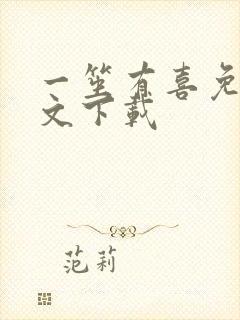 一筮有喜免
文下载
范莉